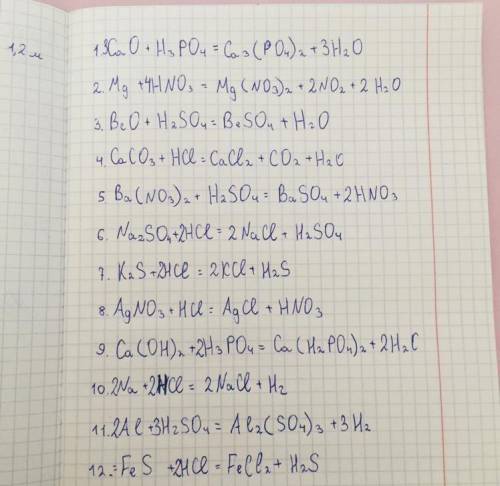 1,2 м
1. 3CaO + H₃PO₄ = Ca₃(PO₄)₂ + 3H₂O
2. Mg + 4HNO₃ = Mg(NO₃)₂ + 2NO₂ + 2H₂O
3. BeO + H₂SO₄ = BeSO₄ + H₂O
4. CaCO₃ + HCl = CaCl₂ + CO₂ + H₂O
5. Ba(NO₃)₂ + H₂SO₄ = BaSO₄ + 2HNO₃
6. Na₂SO₄ + 2HCl = 2NaCl + H₂SO₄
7. K₂S + 2HCl = 2KCl + H₂S
8. AgNO₃ + HCl = AgCl + HNO₃
9. Ca(OH)₂ + 2H₃PO₄ = Ca(H₂PO₄)₂ + 2H₂O
10. 2Na + 2HCl = 2NaCl + H₂
11. 2Al + 3H₂SO₄ = Al₂(SO₄)₃ + 3H₂
12. FeS + 2HCl = FeCl₂ + H₂S